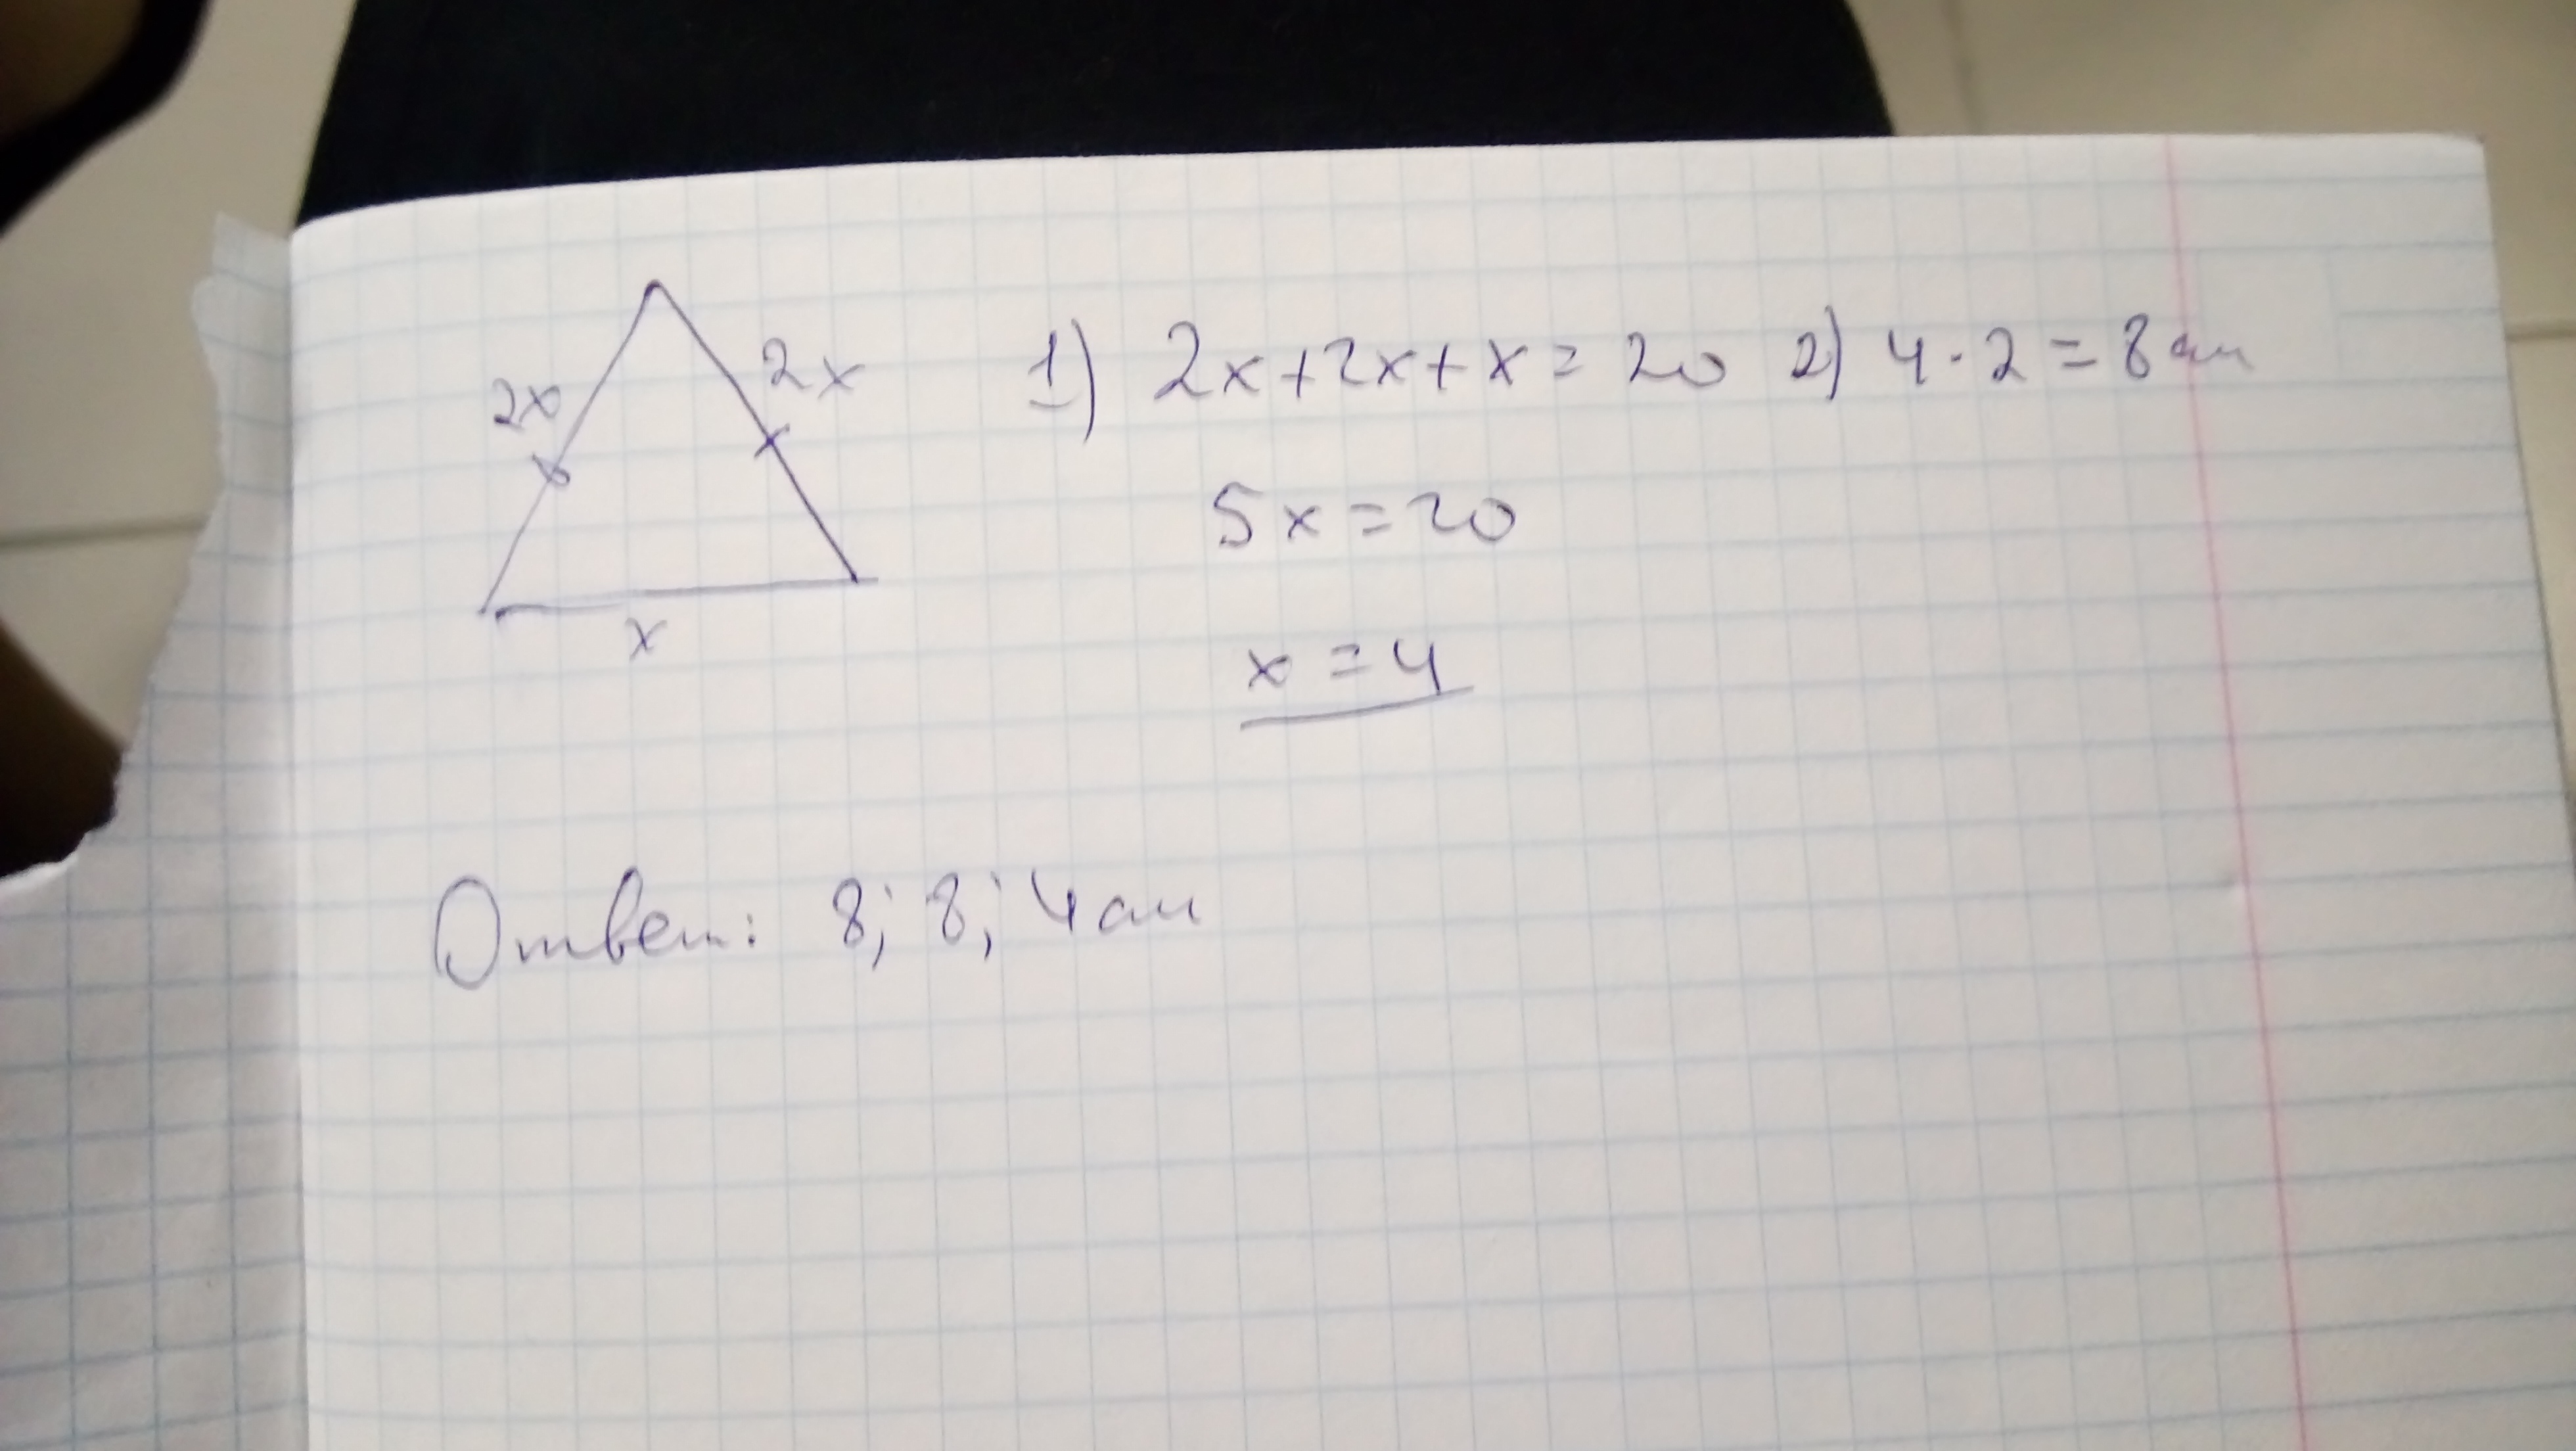 2x
2x
x
1) 2x+2x+x=20 2) 4·2=8см
5x=20
x=4
Ответ: 8; 8; 4см